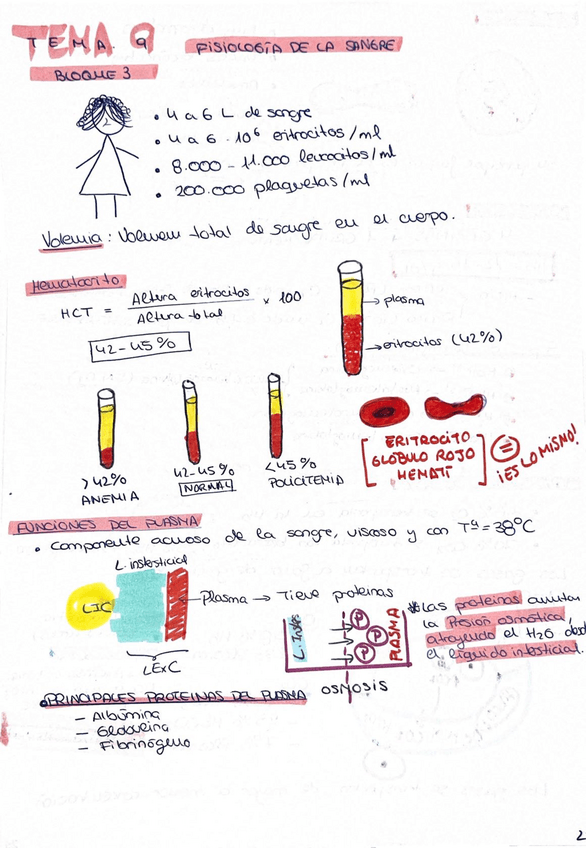 TEMA 9 FISIOLOGÍA DE LA SANGRE
BLOQUE 3
• 4 a 6 L de sangre
• 4 a 6 · 10⁶ eritrocitos/ml
• 8.000 - 11.000 leucocitos/ml
• 200.000 plaquetas/ml
Volemia: Volumen total de sangre en el cuerpo.
Hematocrito
HCT = Altura eritrocitos / Altura total × 100
42-45%
→ plasma
→ eritrocitos (42%)
>42%
ANEMIA
42-45%
NORMAL
<45%
POLICITEMIA
ERITROCITO
GLÓBULO ROJO
HEMATÍ
= ¡ES LO MISMO!
FUNCIONES DEL PLASMA
• Componente acuoso de la sangre, viscoso y con Tª = 38°C
L. instersticial
LIC
Plasma → Tiene proteinas
LExC
L. Inters
P
P
P
PLASMA
OSMOSIS
*Las proteinas aumentan
la Presión osmótica,
atrayendo el H₂O desde
el líquido intersticial.
• PRINCIPALES PROTEINAS DEL PLASMA
- Albúmina
- Globulina
- Fibrinógeno
2